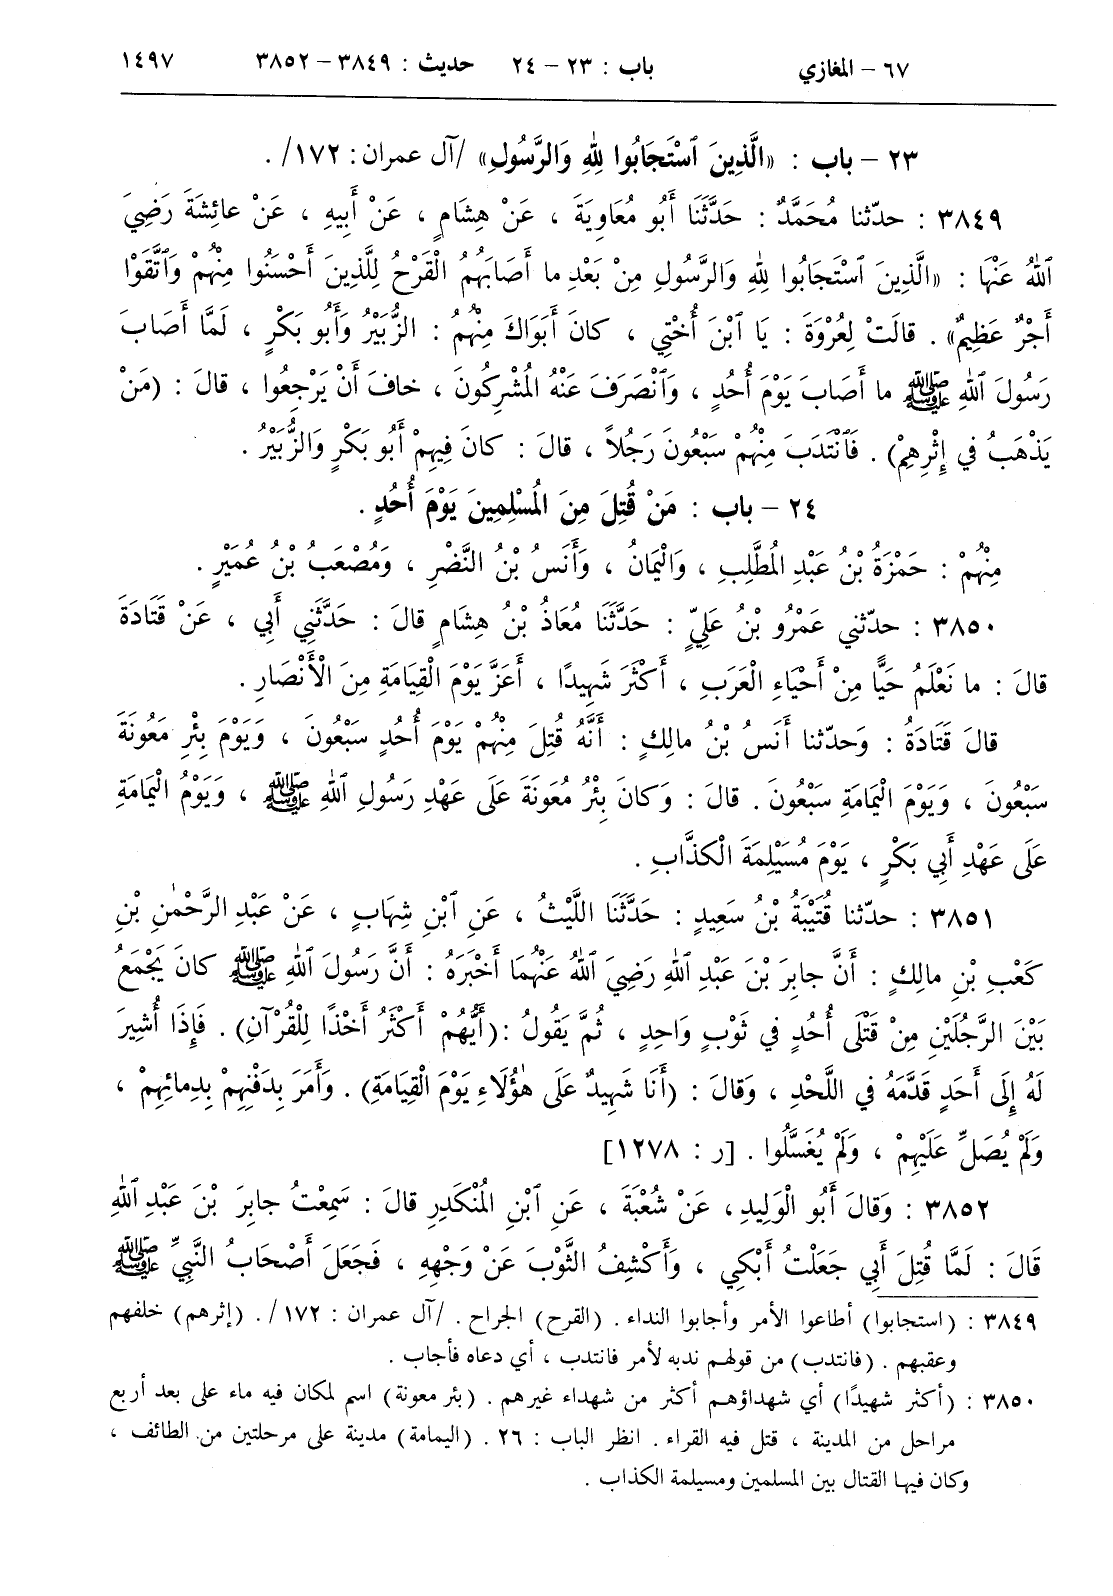 ٦٧ – المغازي باب : ٢٣ – ٢٤ حديث : ٣٨٤٩ – ٣٨٥٢ ١٤٩٧
٢٣ – باب : «الَّذِينَ ٱسْتَجَابُوا لِلّٰهِ وَالرَّسُولِ» /آل عمران : ١٧٢/ .
٣٨٤٩ : حدّثنا مُحَمَّدٌ : حَدَّثَنَا أَبُو مُعَاوِيَةَ ، عَنْ هِشَامٍ ، عَنْ أَبِيهِ ، عَنْ عائِشَةَ رَضِيَ
ٱللهُ عَنْهَا : «الَّذِينَ ٱسْتَجَابُوا لِلّٰهِ وَالرَّسُولِ مِنْ بَعْدِ ما أَصَابَهُمُ الْقَرْحُ لِلَّذِينَ أَحْسَنُوا مِنْهُمْ وَٱتَّقَوْا
أَجْرٌ عَظِيمٌ» . قالَتْ لِعُرْوَةَ : يَا ٱبْنَ أُخْتِي ، كانَ أَبَوَاكَ مِنْهُمُ : الزُّبَيْرُ وَأَبُو بَكْرٍ ، لَمَّا أَصَابَ
رَسُولَ ٱللهِ ﷺ ما أَصَابَ يَوْمَ أُحُدٍ ، وَٱنْصَرَفَ عَنْهُ المُشْرِكُونَ ، خافَ أَنْ يَرْجِعُوا ، قالَ : (مَنْ
يَذْهَبُ في إِثْرِهِمْ) . فَٱنْتَدَبَ مِنْهُمْ سَبْعُونَ رَجُلاً ، قالَ : كانَ فِيهِمْ أَبُو بَكْرٍ وَالزُّبَيْرُ .
٢٤ – باب : مَنْ قُتِلَ مِنَ المُسْلِمِينَ يَوْمَ أُحُدٍ .
مِنْهُمْ : حَمْزَةُ بْنُ عَبْدِ المُطَّلِبِ ، وَالْيَمَانُ ، وَأَنَسُ بْنُ النَّضْرِ ، وَمُصْعَبُ بْنُ عُمَيْرٍ .
٣٨٥٠ : حدّثني عَمْرُو بْنُ عَلِيٍّ : حَدَّثَنَا مُعَاذُ بْنُ هِشَامٍ قالَ : حَدَّثَنِي أَبِي ، عَنْ قَتَادَةَ
قالَ : ما نَعْلَمُ حَيًّا مِنْ أَحْيَاءِ الْعَرَبِ ، أَكْثَرَ شَهِيدًا ، أَعَزَّ يَوْمَ الْقِيَامَةِ مِنَ الْأَنْصَارِ .
قالَ قَتَادَةُ : وَحدّثنا أَنَسُ بْنُ مالِكٍ : أَنَّهُ قُتِلَ مِنْهُمْ يَوْمَ أُحُدٍ سَبْعُونَ ، وَيَوْمَ بِئْرِ مَعُونَةَ
سَبْعُونَ ، وَيَوْمَ الْيَمَامَةِ سَبْعُونَ . قالَ : وَكانَ بِئْرُ مُعَونَةَ عَلَى عَهْدِ رَسُولِ ٱللهِ ﷺ ، وَيَوْمُ الْيَمَامَةِ
عَلَى عَهْدِ أَبِي بَكْرٍ ، يَوْمَ مُسَيْلِمَةَ الْكَذَّابِ .
٣٨٥١ : حدّثنا قُتَيْبَةُ بْنُ سَعِيدٍ : حَدَّثَنَا اللَّيْثُ ، عَنِ ٱبْنِ شِهَابٍ ، عَنْ عَبْدِ الرَّحْمٰنِ بْنِ
كَعْبِ بْنِ مالِكٍ : أَنَّ جابِرَ بْنَ عَبْدِ ٱللهِ رَضِيَ ٱللهُ عَنْهُمَا أَخْبَرَهُ : أَنَّ رَسُولَ ٱللهِ ﷺ كانَ يَجْمَعُ
بَيْنَ الرَّجُلَيْنِ مِنْ قَتْلَى أُحُدٍ في ثَوْبٍ وَاحِدٍ ، ثُمَّ يَقُولُ : (أَيُّهُمْ أَكْثَرُ أَخْذًا لِلْقُرْآنِ) . فَإِذَا أُشِيرَ
لَهُ إِلَى أَحَدٍ قَدَّمَهُ في اللَّحْدِ ، وَقالَ : (أَنَا شَهِيدٌ عَلَى هٰؤُلَاءِ يَوْمَ الْقِيَامَةِ) . وَأَمَرَ بِدَفْنِهِمْ بِدِمائِهِمْ ،
وَلَمْ يُصَلِّ عَلَيْهِمْ ، وَلَمْ يُغَسَّلُوا . [ر : ١٢٧٨]
٣٨٥٢ : وَقالَ أَبُو الْوَلِيدِ ، عَنْ شُعْبَةَ ، عَنِ ٱبْنِ المُنْكَدِرِ قالَ : سَمِعْتُ جابِرَ بْنَ عَبْدِ ٱللهِ
قَالَ : لَمَّا قُتِلَ أَبِي جَعَلْتُ أَبْكِي ، وَأَكْشِفُ الثَّوْبَ عَنْ وَجْهِهِ ، فَجَعَلَ أَصْحَابُ النَّبِيِّ ﷺ
٣٨٤٩ : (استجابوا) أطاعوا الأمر وأجابوا النداء . (القرح) الجراح . /آل عمران : ١٧٢/ . (إثرهم) خلفهم
وعقبهم . (فانتدب) من قولهم ندبه لأمر فانتدب ، أي دعاه فأجاب .
٣٨٥٠ : (أكثر شهيدًا) أي شهداؤهم أكثر من شهداء غيرهم . (بئر معونة) اسم لمكان فيه ماء على بعد أربع
مراحل من المدينة ، قتل فيه القراء . انظر الباب : ٢٦ . (اليمامة) مدينة على مرحلتين من الطائف ،
وكان فيها القتال بين المسلمين ومسيلمة الكذاب .